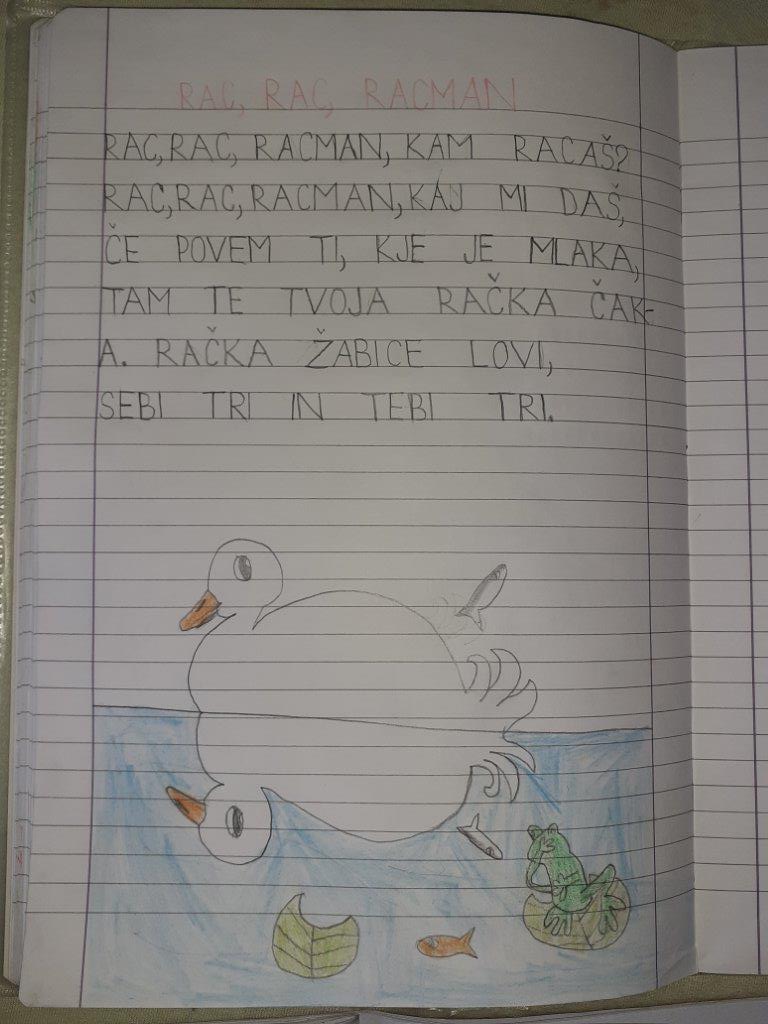 RAC, RAC, RACMAN
RAC, RAC, RACMAN, KAM RACAŠ?
RAC, RAC, RACMAN, KAJ MI DAŠ,
ČE POVEM TI, KJE JE MLAKA,
TAM TE TVOJA RAČKA ČAK-
A. RAČKA ŽABICE LOVI,
SEBI TRI IN TEBI TRI.